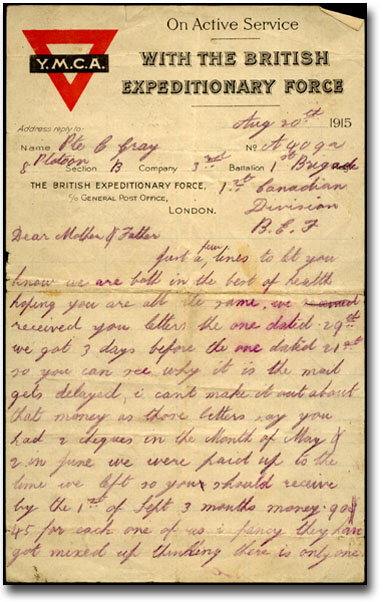 On Active Service
Y.M.C.A.
WITH THE BRITISH
EXPEDITIONARY FORCE
Aug 20th 1915
Address reply to:
Name Pte C Gray No A 4092
8 Platoon Section B Company 3rd Battalion 1st Brigade
THE BRITISH EXPEDITIONARY FORCE, 1st Canadian
c/o GENERAL POST OFFICE, Division
LONDON. B.E.F
Dear Mother & Father
just a few lines to let you
know we are both in the best of health
hoping you are all the same, we
received you letters the one datid 29th
we got 3 days before the one datid 21st
so you can see why it is the mail
gets delayed, i cant make it out about
that money as those letters say you
had 2 cheques in the Month of May &
2 in June we were paid up to the
time we left so you should receive
by the 1st of Sept 3 months money
45 for each one of us i fancy they have
got mixed up thinking there is only one